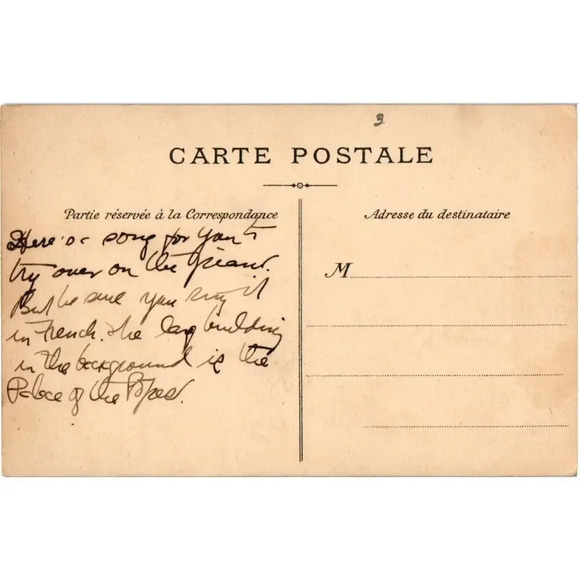 3
CARTE POSTALE
Partie réservée à la Correspondance
Adresse du destinataire
Here's a song for you to
try over on the piano.
But be sure you sing it
in French. The large building
in the background is the
Palace of the Popes.
M